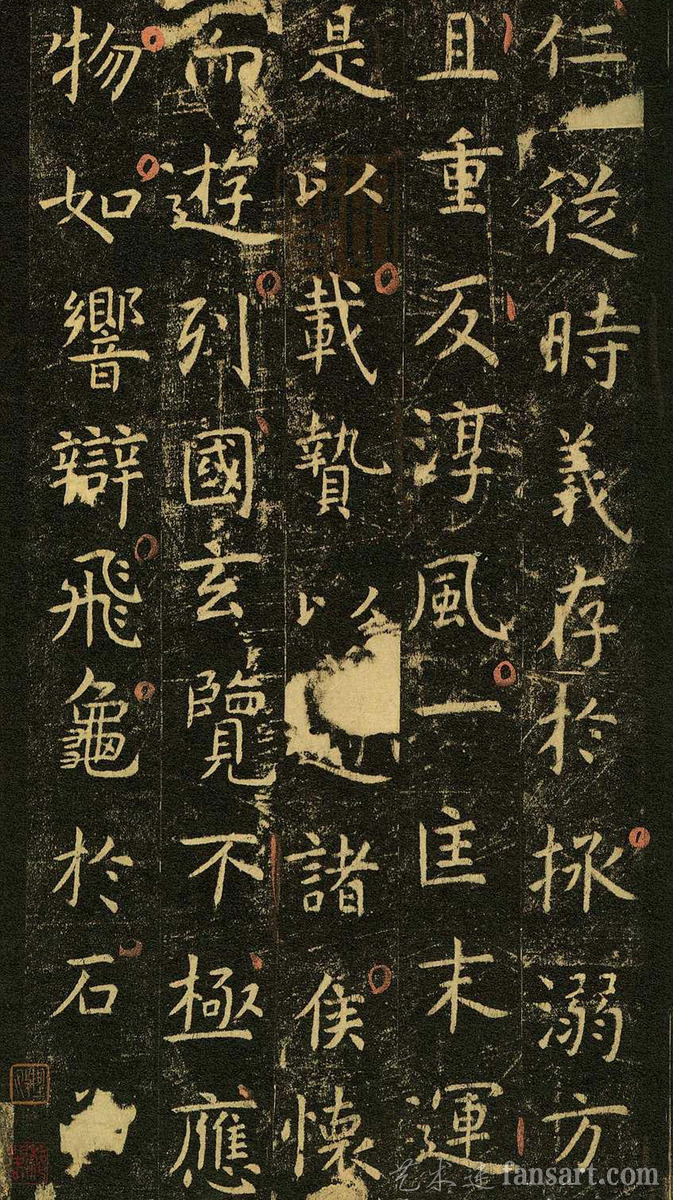 仁從時義存於拯溺方
且重反淳風一匡末運
是以載贄以諸侯懷
而遊列國玄覽不極應
物如響辯飛龜於石
fansart.com